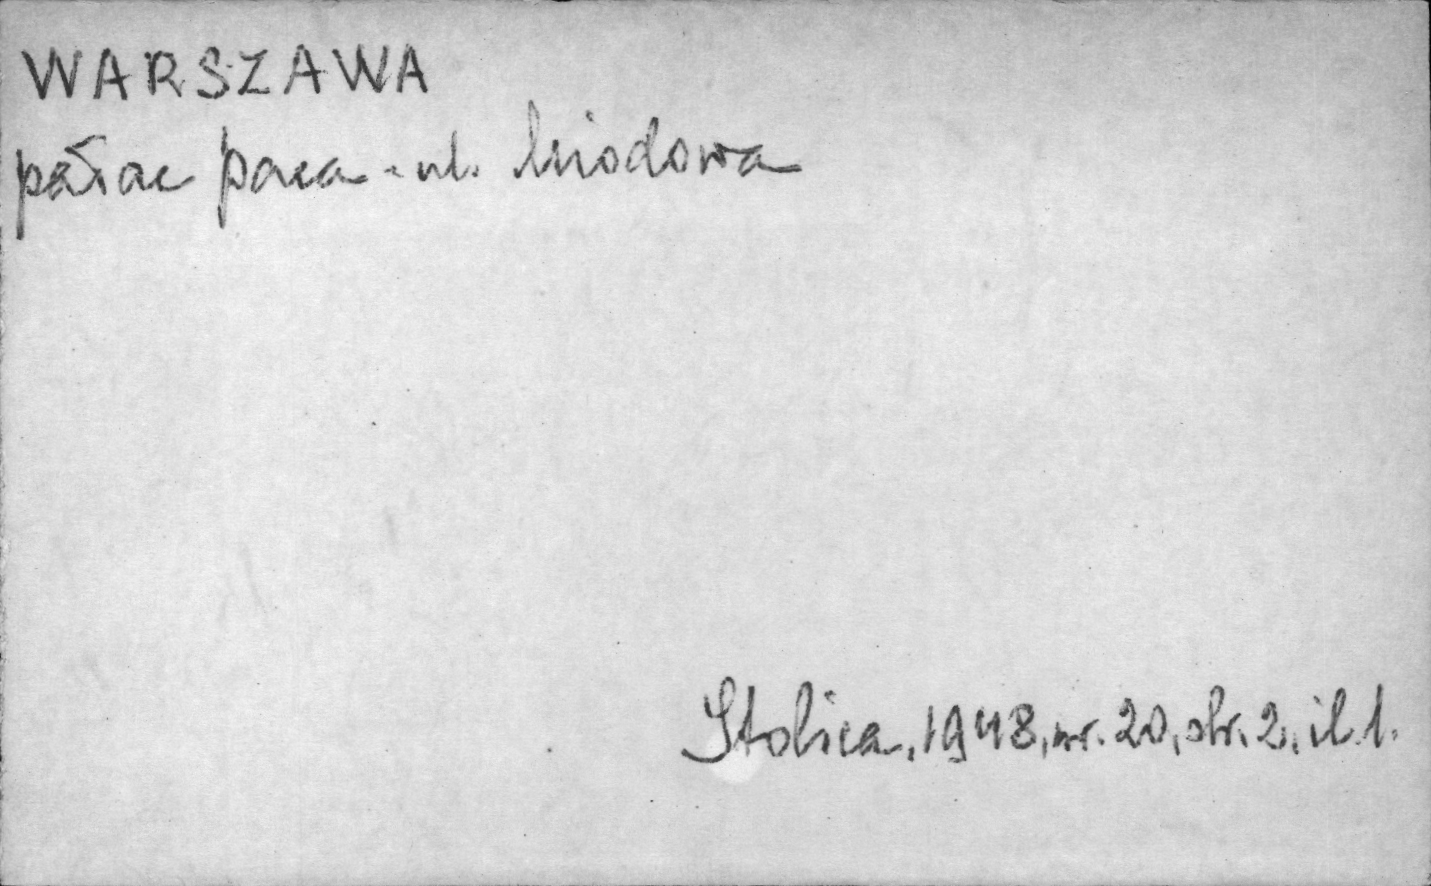 WARSZAWA
pałac Paca - ul. Miodowa
Stolica, 1948, nr. 20, str. 2, il. 1.